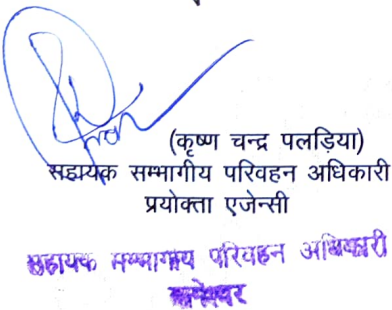 (कृष्ण चन्द्र पलड़िया)
सहायक सम्भागीय परिवहन अधिकारी
प्रयोक्ता एजेन्सी
सहायक सम्भागीय परिवहन अधिकारी
बागेश्वर